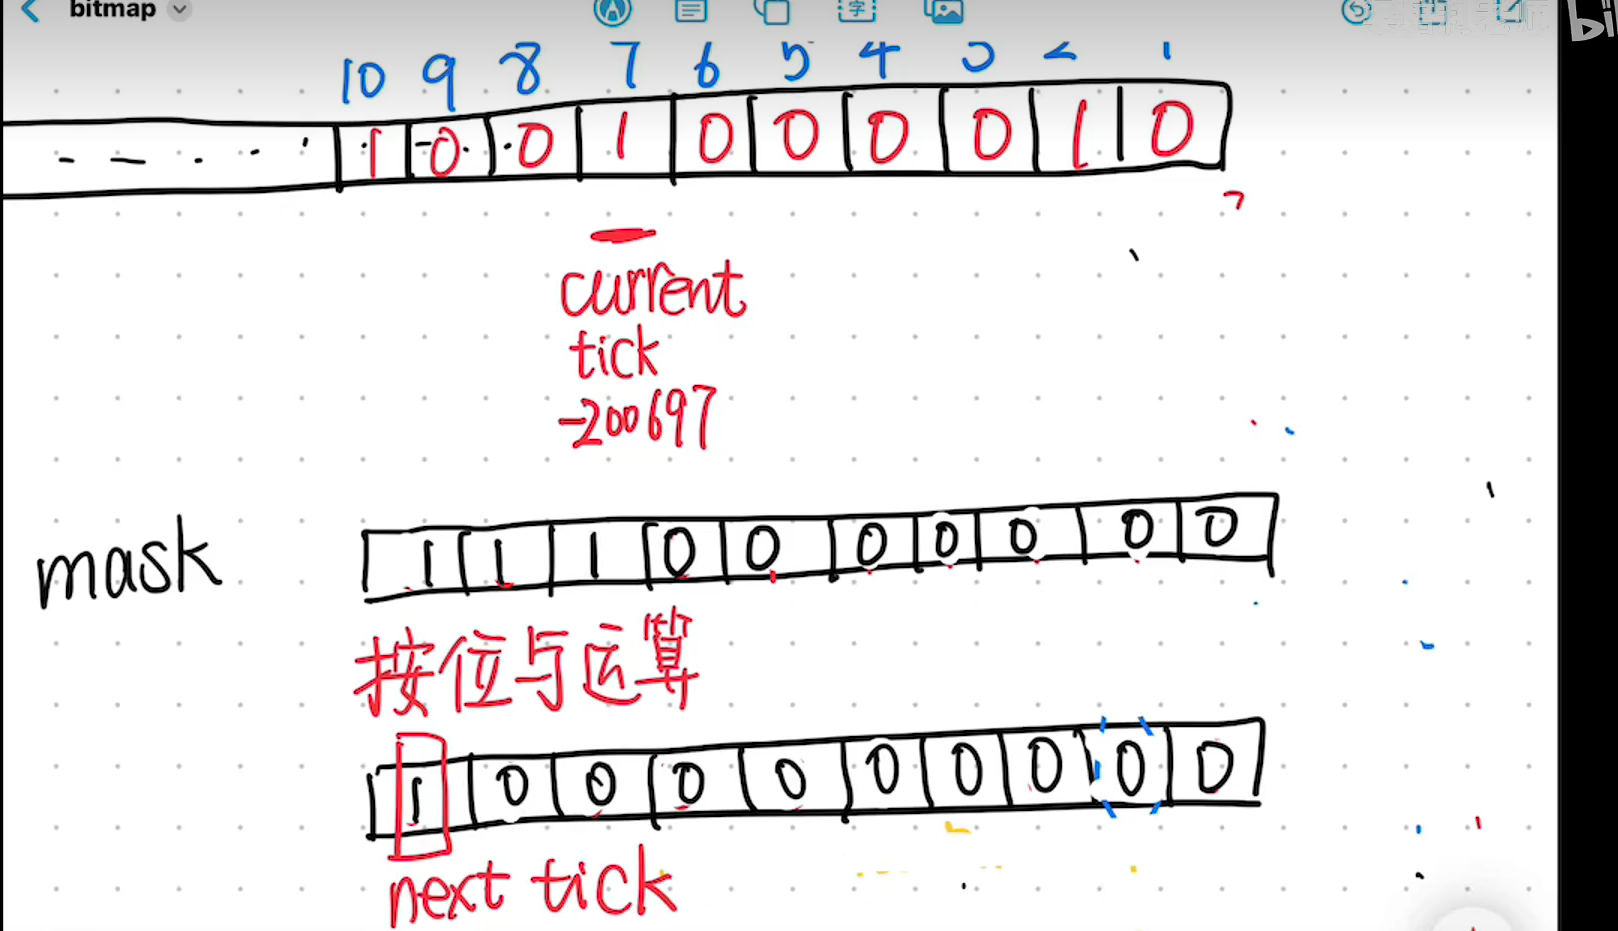 bitmap
10 9 8 7 6 5 4 3 2 1
1 0 0 1 0 0 0 0 1 0
current
tick
-200697
mask
1 1 1 0 0 0 0 0 0 0
按位与运算
1 0 0 0 0 0 0 0 0 0
next tick